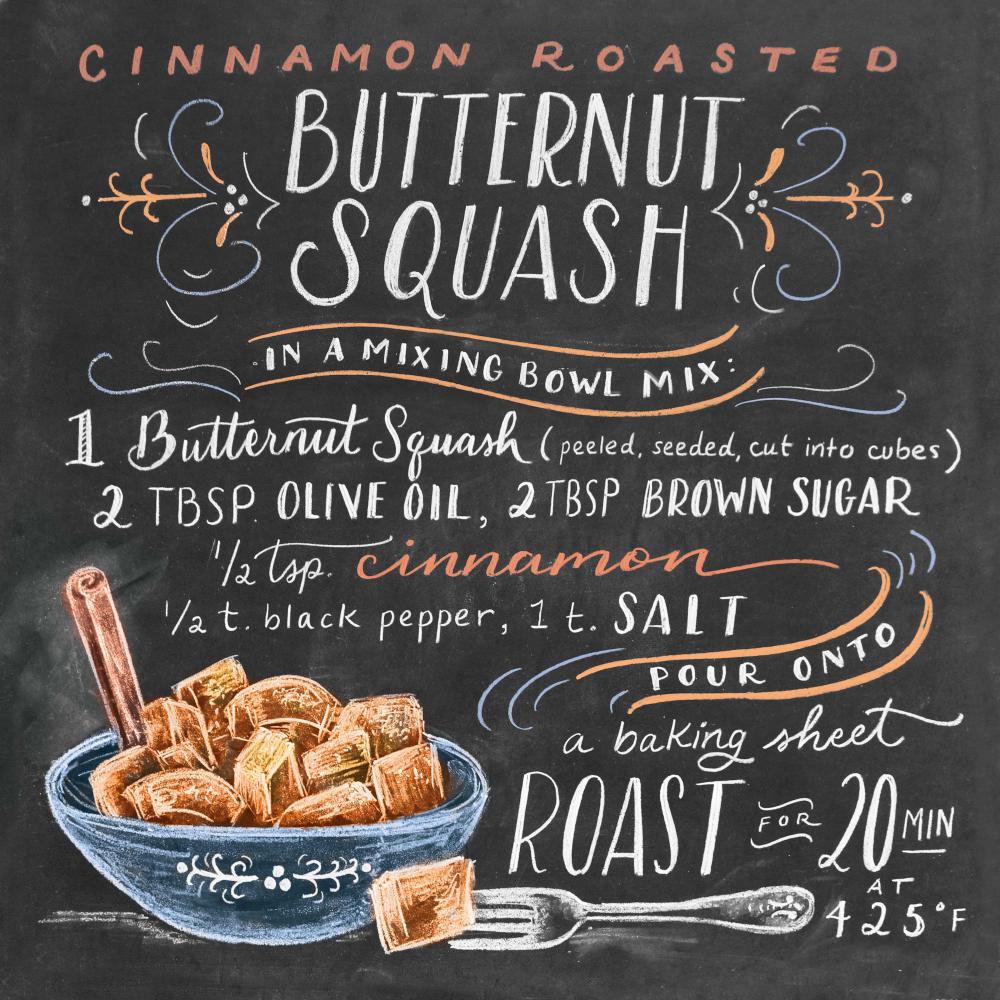 CINNAMON ROASTED
BUTTERNUT
SQUASH
·IN A MIXING BOWL MIX:
1 Butternut Squash (peeled, seeded, cut into cubes)
2 TBSP. OLIVE OIL, 2 TBSP BROWN SUGAR
1/2 tsp. cinnamon
1/2 t. black pepper, 1 t. SALT
POUR ONTO
a baking sheet
ROAST FOR 20 MIN
AT
425°F